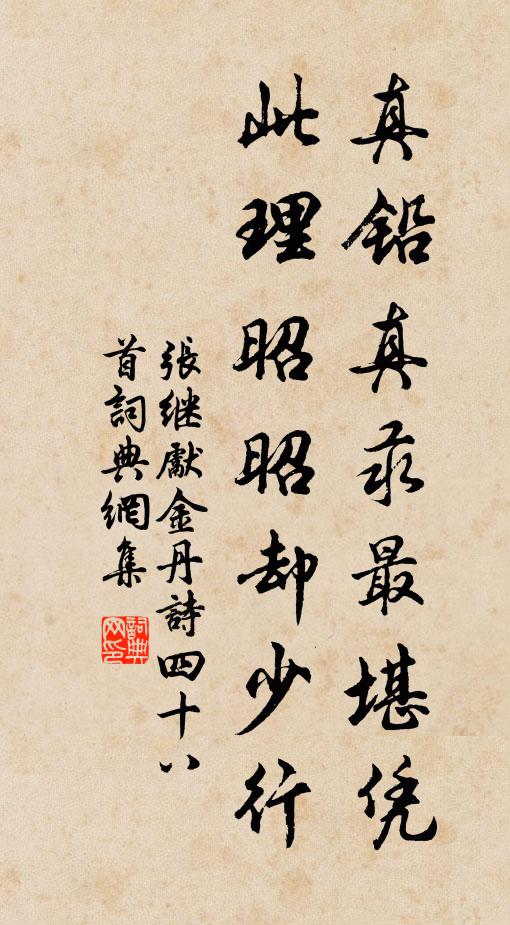 真鉛真汞最堪凭
此理昭昭却少行
張继獻金丹詩四十八
首詞典網集
詞典
网印